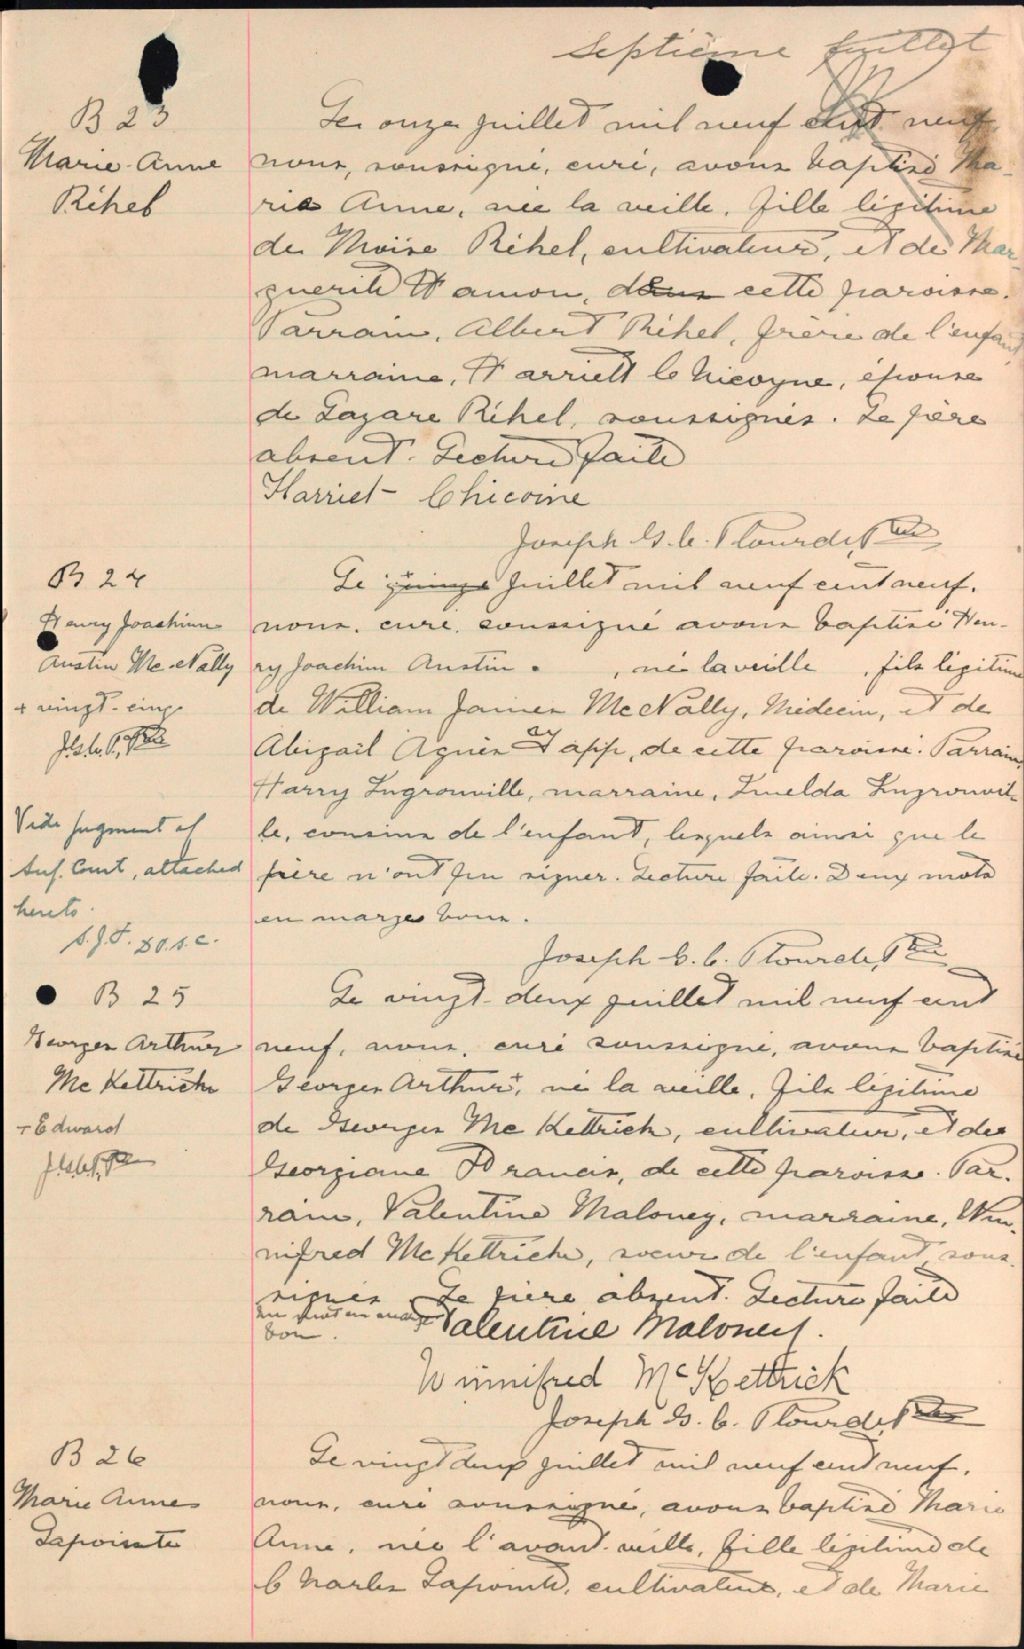 Septième juillet
B 23
Marie-Anne
Réhel
Le onze juillet mil neuf cent neuf
nous, soussigné, curé, avons baptisé Ma-
rie Anne, née la veille, fille légitime
de Moïse Réhel, cultivateur, et de Mar-
guerite Hamon, de cette paroisse.
Parrain, Albert Réhel, frère de l'enfant
marraine, Harriett le Chicoyne, épouse
de Lazare Réhel, soussignés. Le père
absent. Lecture faite
Harriet Chicoine
Joseph G. C. Plourde, Ptre
B 24
Henry Joachim
Austin McNally
+ vingt-cinq
J.G.C.P., Ptre
Vide judgment of
Sup. Court, attached
hereto.
Le + juillet mil neuf cent neuf.
nous, curé, soussigné avons baptisé Hen-
ry Joachim Austin, né la veille, fils légitime
de William James McNally, Médecin, et de
Abigaïl Agnès Tapp, de cette paroisse. Parrain,
Harry Ingrouville, marraine, Imelda Ingrouvil-
le, cousins de l'enfant, lesquels ainsi que le
père n'ont pu signer. Lecture faite. Deux mots
en marge bons.
Joseph G. C. Plourde, Ptre
B 25
Georges Arthur
McKettrick
+ Edward
J.G.C.P., Ptre
Le vingt-deux juillet mil neuf cent
neuf, nous, curé soussigné, avons baptisé
Georges Arthur+, né la veille, fils légitime
de Georges McKettrick, cultivateur, et de
Georgiane Francis, de cette paroisse. Par-
rain, Valentine Maloney, marraine, Win-
nifred McKettrick, soeur de l'enfant, sous-
signés. Le père absent. Lecture faite
un mot en marge
bon.
Valentine Maloney.
Winnifred McKettrick
Joseph G. C. Plourde, Ptre
B 26
Marie Anne
Lapointe
Le vingt deux juillet mil neuf cent neuf,
nous, curé soussigné, avons baptisé Marie
Anne, née l'avant-veille, fille légitime de
Charles Lapointe, cultivateur, et de Marie